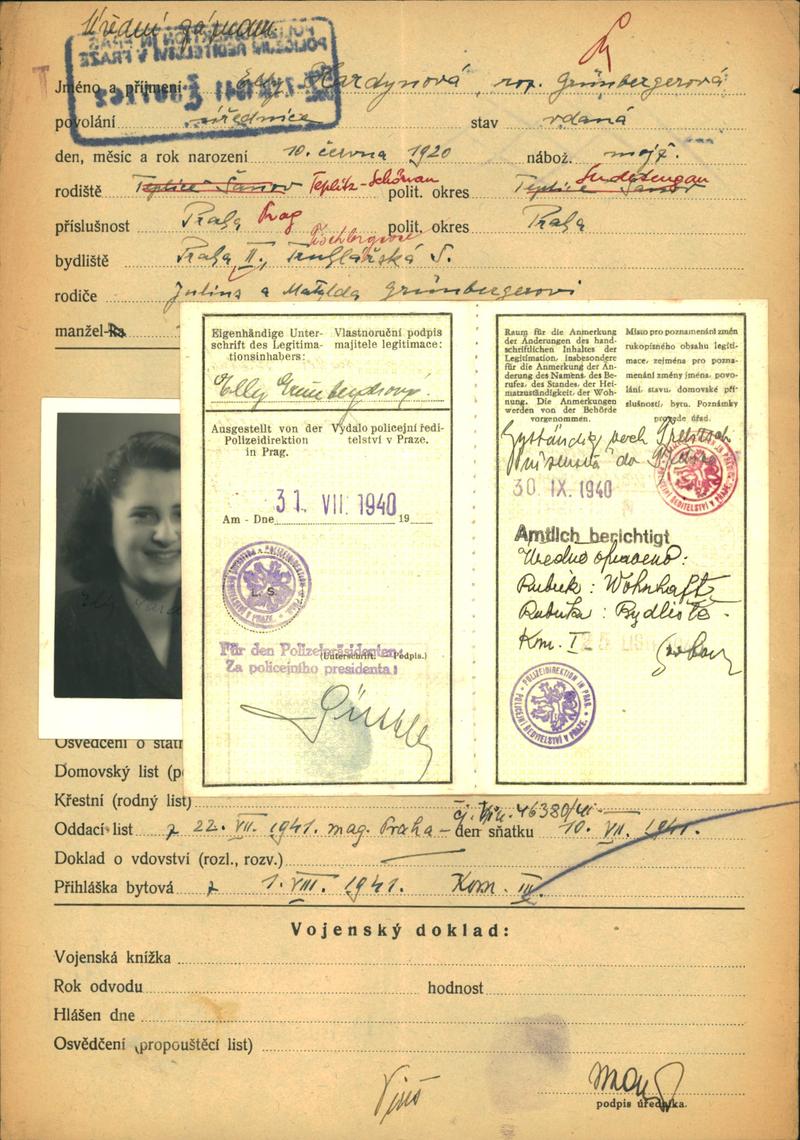 Úřední záznam.
POLIZEIDIREKTION IN PRAG
POLICEJNÍ ŘEDITELSTVÍ V PRAZE
Jméno a příjmení Elly Hardynová, roz. Grünbergerová
povolání úřednice stav vdaná
den, měsíc a rok narození 10. června 1920 nábož. mojž.
rodiště Teplice Šanov Teplitz-Schönau polit. okres Teplice Šanov Sudetengau
příslušnost Praha Prag polit. okres Praha
bydliště Praha II., Truhlářská 5.
rodiče Julius a Matylda Grünbergerovi
manžel-ka
Eigenhändige Unterschrift des Legitimationsinhabers:
Vlastnoruční podpis majitele legitimace:
Elly Grünbergerová.
Ausgestellt von der Polizeidirektion in Prag.
Vydalo policejní ředitelství v Praze.
31. VII. 1940
Am - Dne 19
POLIZEIDIREKTION IN PRAG
POLICEJNÍ ŘEDITELSTVÍ V PRAZE
L. S.
Für den Polizeipräsidenten:
(Unterschrift. - Podpis.)
Za policejního presidenta:
Raum für die Anmerkung
der Änderungen des handschriftlichen
Inhaltes der
Legitimation, insbesondere
für die Anmerkung der Änderung
des Namens, des Berufes,
des Standes, der Heimatzuständigkeit,
der Wohnung.
Die Anmerkungen
werden von der Behörde
vorgenommen.
Místo pro poznamenání změn
rukopisného obsahu legitimace,
zejména pro poznamenání
změny jména, povolání,
stavu, domovské příslušnosti,
bytu. Poznámky
provede úřad.
30. IX. 1940
Amtlich berichtigt
Úředně opraveno:
Rubrik: Wohnhaft
Rubrika: Bydliště
Kom. I.
POLIZEIDIREKTION IN PRAG
POLICEJNÍ ŘEDITELSTVÍ V PRAZE
Osvědčení o stát
Domovský list (p
Křestní (rodný list)
čj. 46380/41
Oddací list z 22. VII. 1941. mag. Praha - den sňatku 10. VII. 1941.
Doklad o vdovství (rozl., rozv.)
Přihláška bytová z 1. VIII. 1941. Kom. III.
Vojenský doklad:
Vojenská knížka
Rok odvodu hodnost
Hlášen dne
Osvědčení (propouštěcí list)
podpis úředníka.